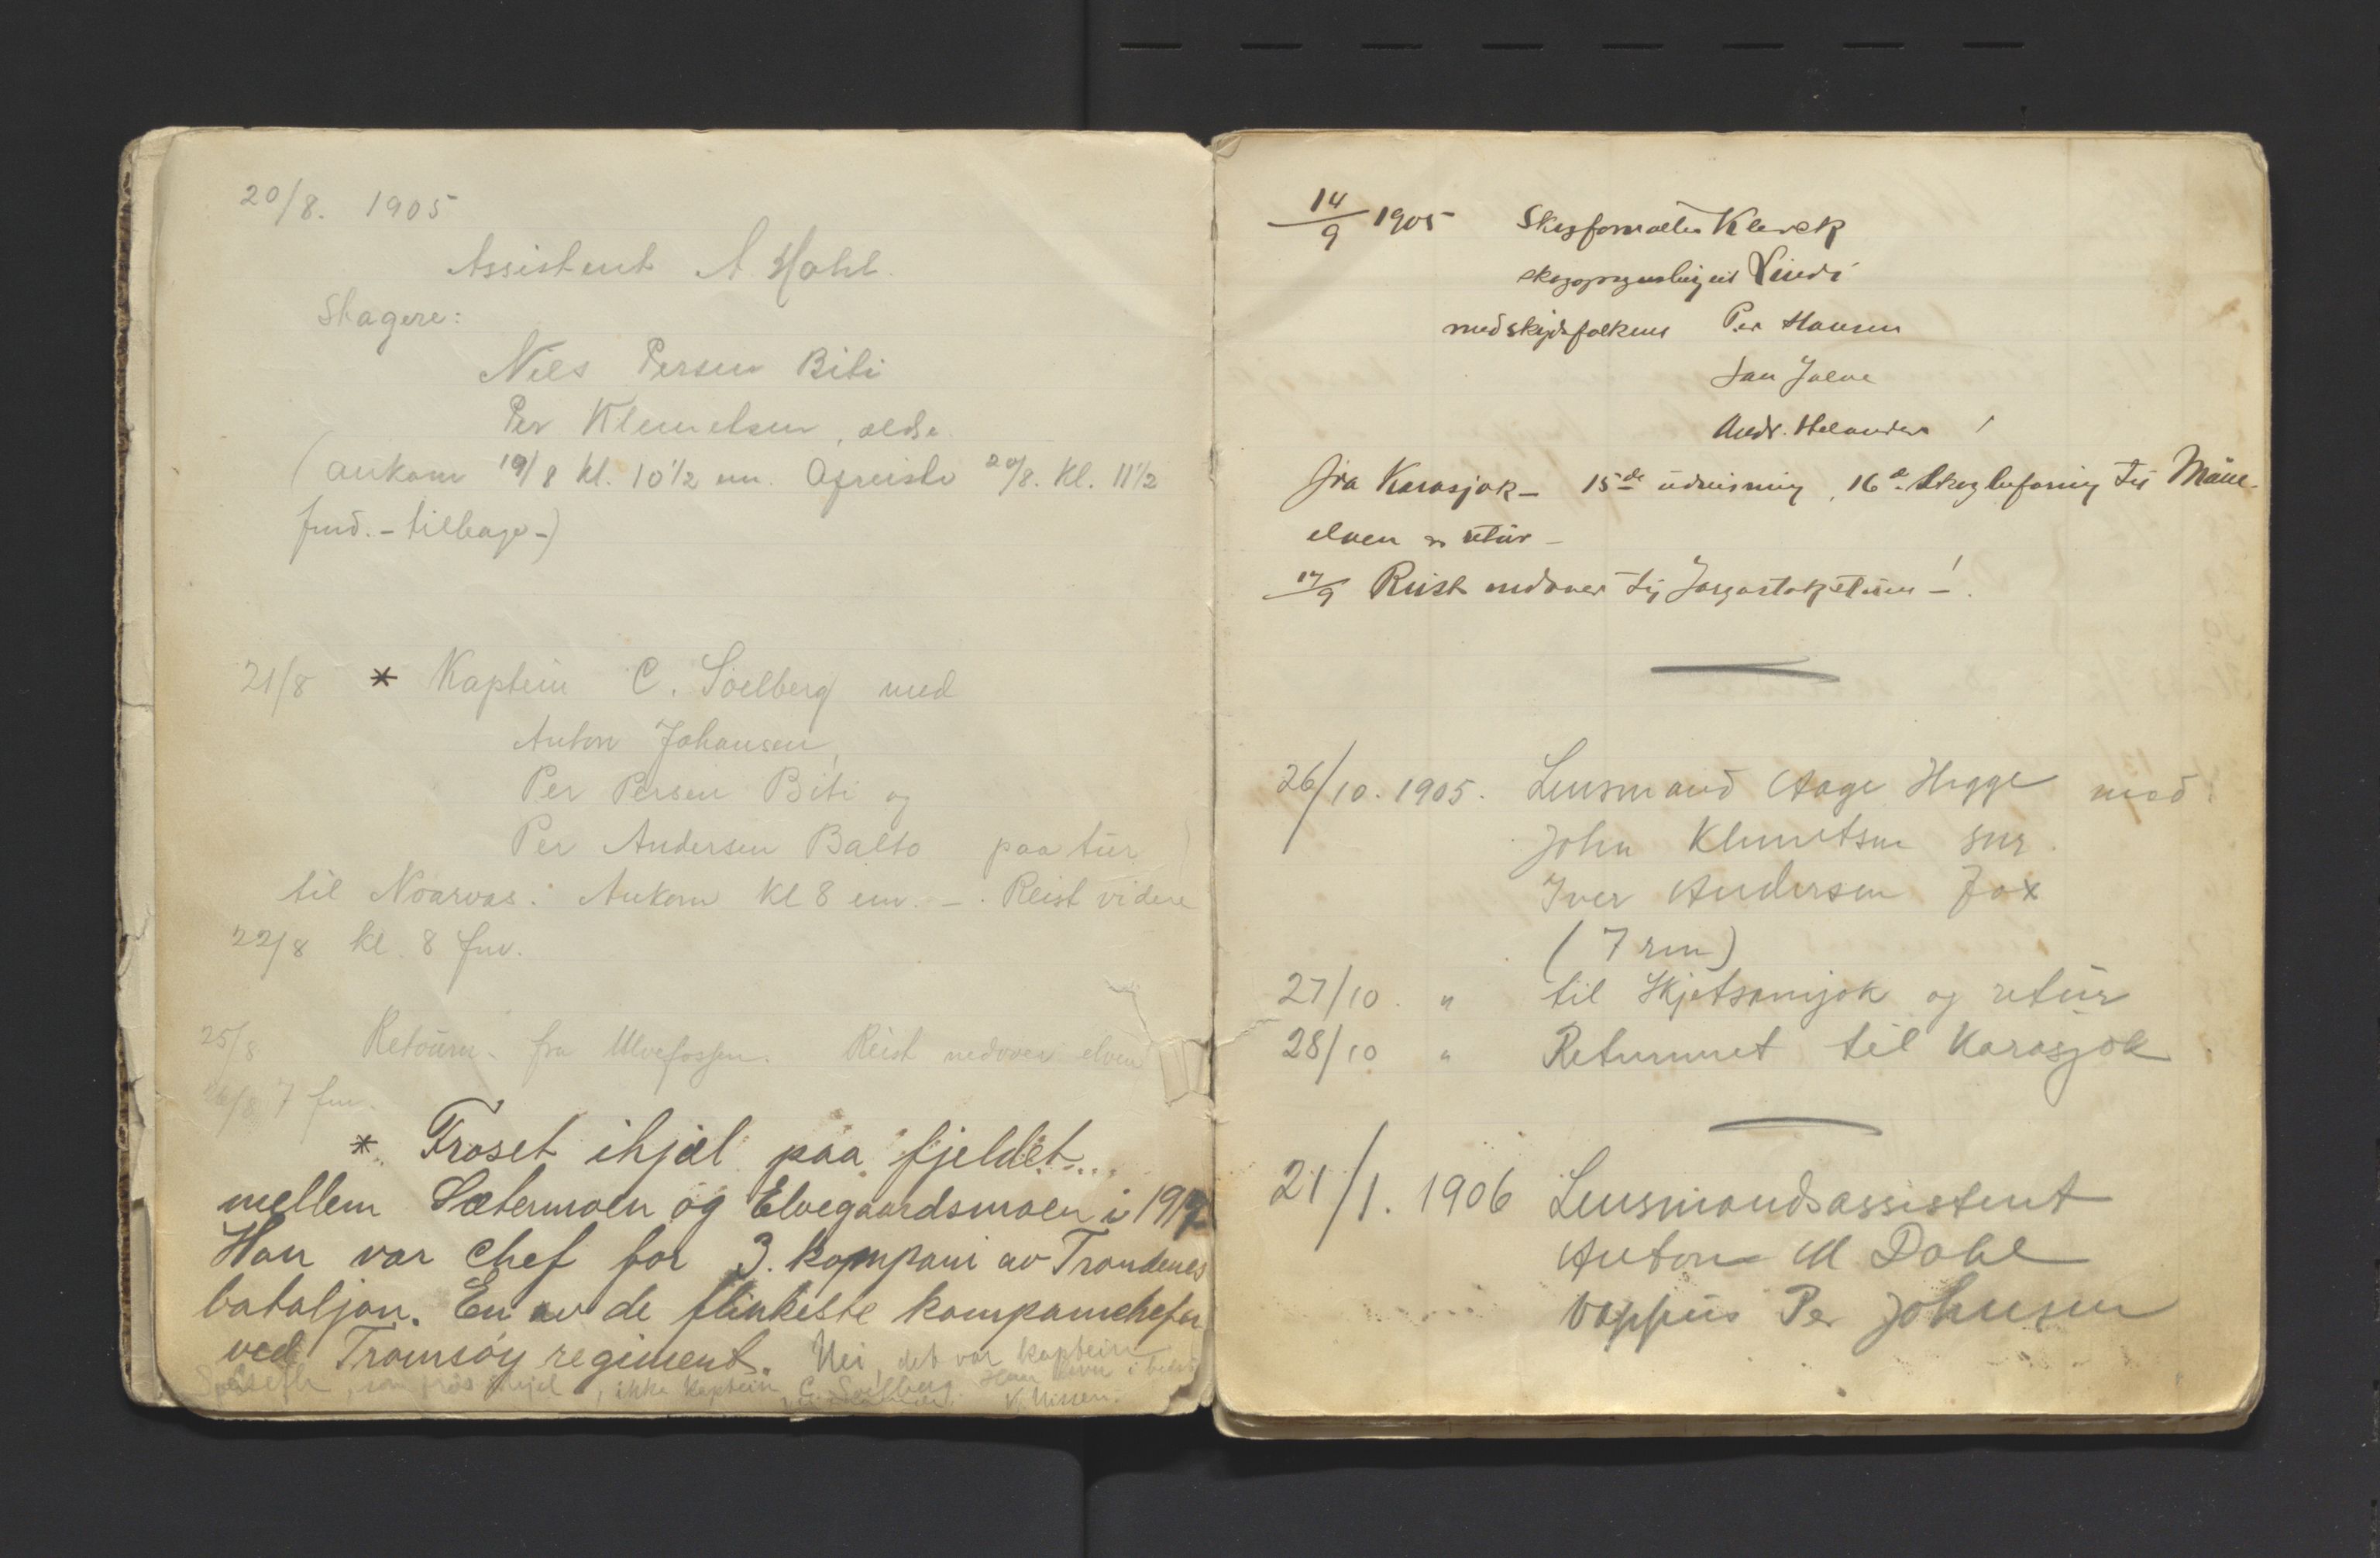 20/8. 1905
Assistent A Hohl.
Skagere:
Nils Persen Biti
Per Klemetsen, ældre
(ankom 19/8 kl. 10 1/2 em. Afreiste 20/8. kl. 11 1/2
fmd. - tilbage -)
21/8 * Kaptein C. Soelberg med
Anton Johansen,
Per Persen Biti og
Per Andersen Balto paa tur
til Noarvas. Ankom kl 8 em. - . Reist videre
22/8 kl. 8 fm.
25/8 Retour fra Ulvefossen. Reist nedover elven
7 fm.
* Froset ihjæl paa fjeldet...
mellem Sætermoen og Elvegaardsmoen i 1912
Han var chef for 3. kompani av Trondenes
bataljon. En av de flinkeste kompanichefer
ved Tromsøy regiment. Nei, det var kaptein
som frøs ihjel, ikke kaptein C. Soelberg. Han lever i
K. Nissen.
14/9 1905 Skogforvalter Klerck
Lindi
med skydsfolkene Per Hansen
Jan
Andr. Helander !
fra Karasjok - 15de udvisning, 16de Skogbefaring til Måne-
elven & retur -
17/9 Reist nedover til Jorgastak -!
26/10. 1905. Lensmand Aage Hegge med
John Klemetsen snr.
Iver Andersen Fox
(7 rm)
27/10 " til Skjetsamjok og retur
28/10 " Returneret til Karasjok
21/1. 1906 Lensmandsassistent
Anton M Dahl
vappus Per Johnsen